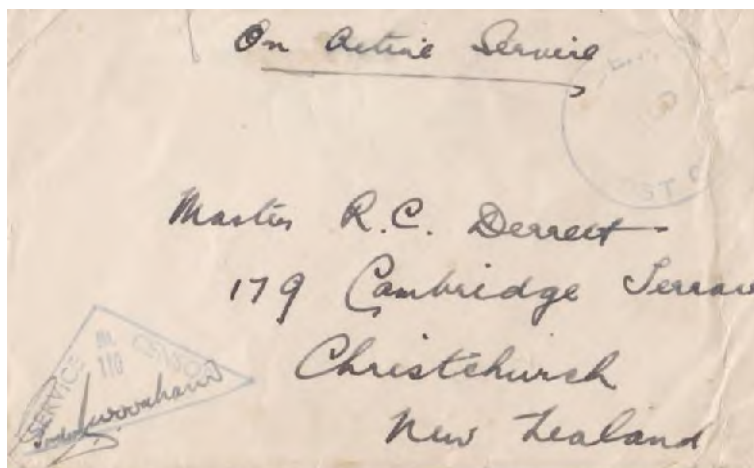 On Active Service
Master R.C. Derrett
179 Cambridge Terrace
Christchurch
New Zealand
SERVICE CENSOR
110